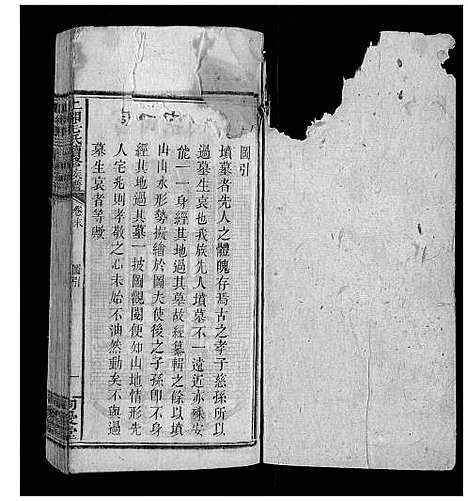 圖引
墳墓者先人之體魄存焉古之孝子慈孫所以
過墓生哀也我族先人墳墓不一遠近亦殊安
能一一身經其地過其墓故經纂輯之餘以墳
山山水形勢摭繪於圖夫使後之子孫卽不身
經其地過其墓一披圖觀閱便知山地情形先
人宅兆則孝敬之心未始不油然動矣不與過
墓生哀者等歟
氏續修族譜
卷末
圖引
一